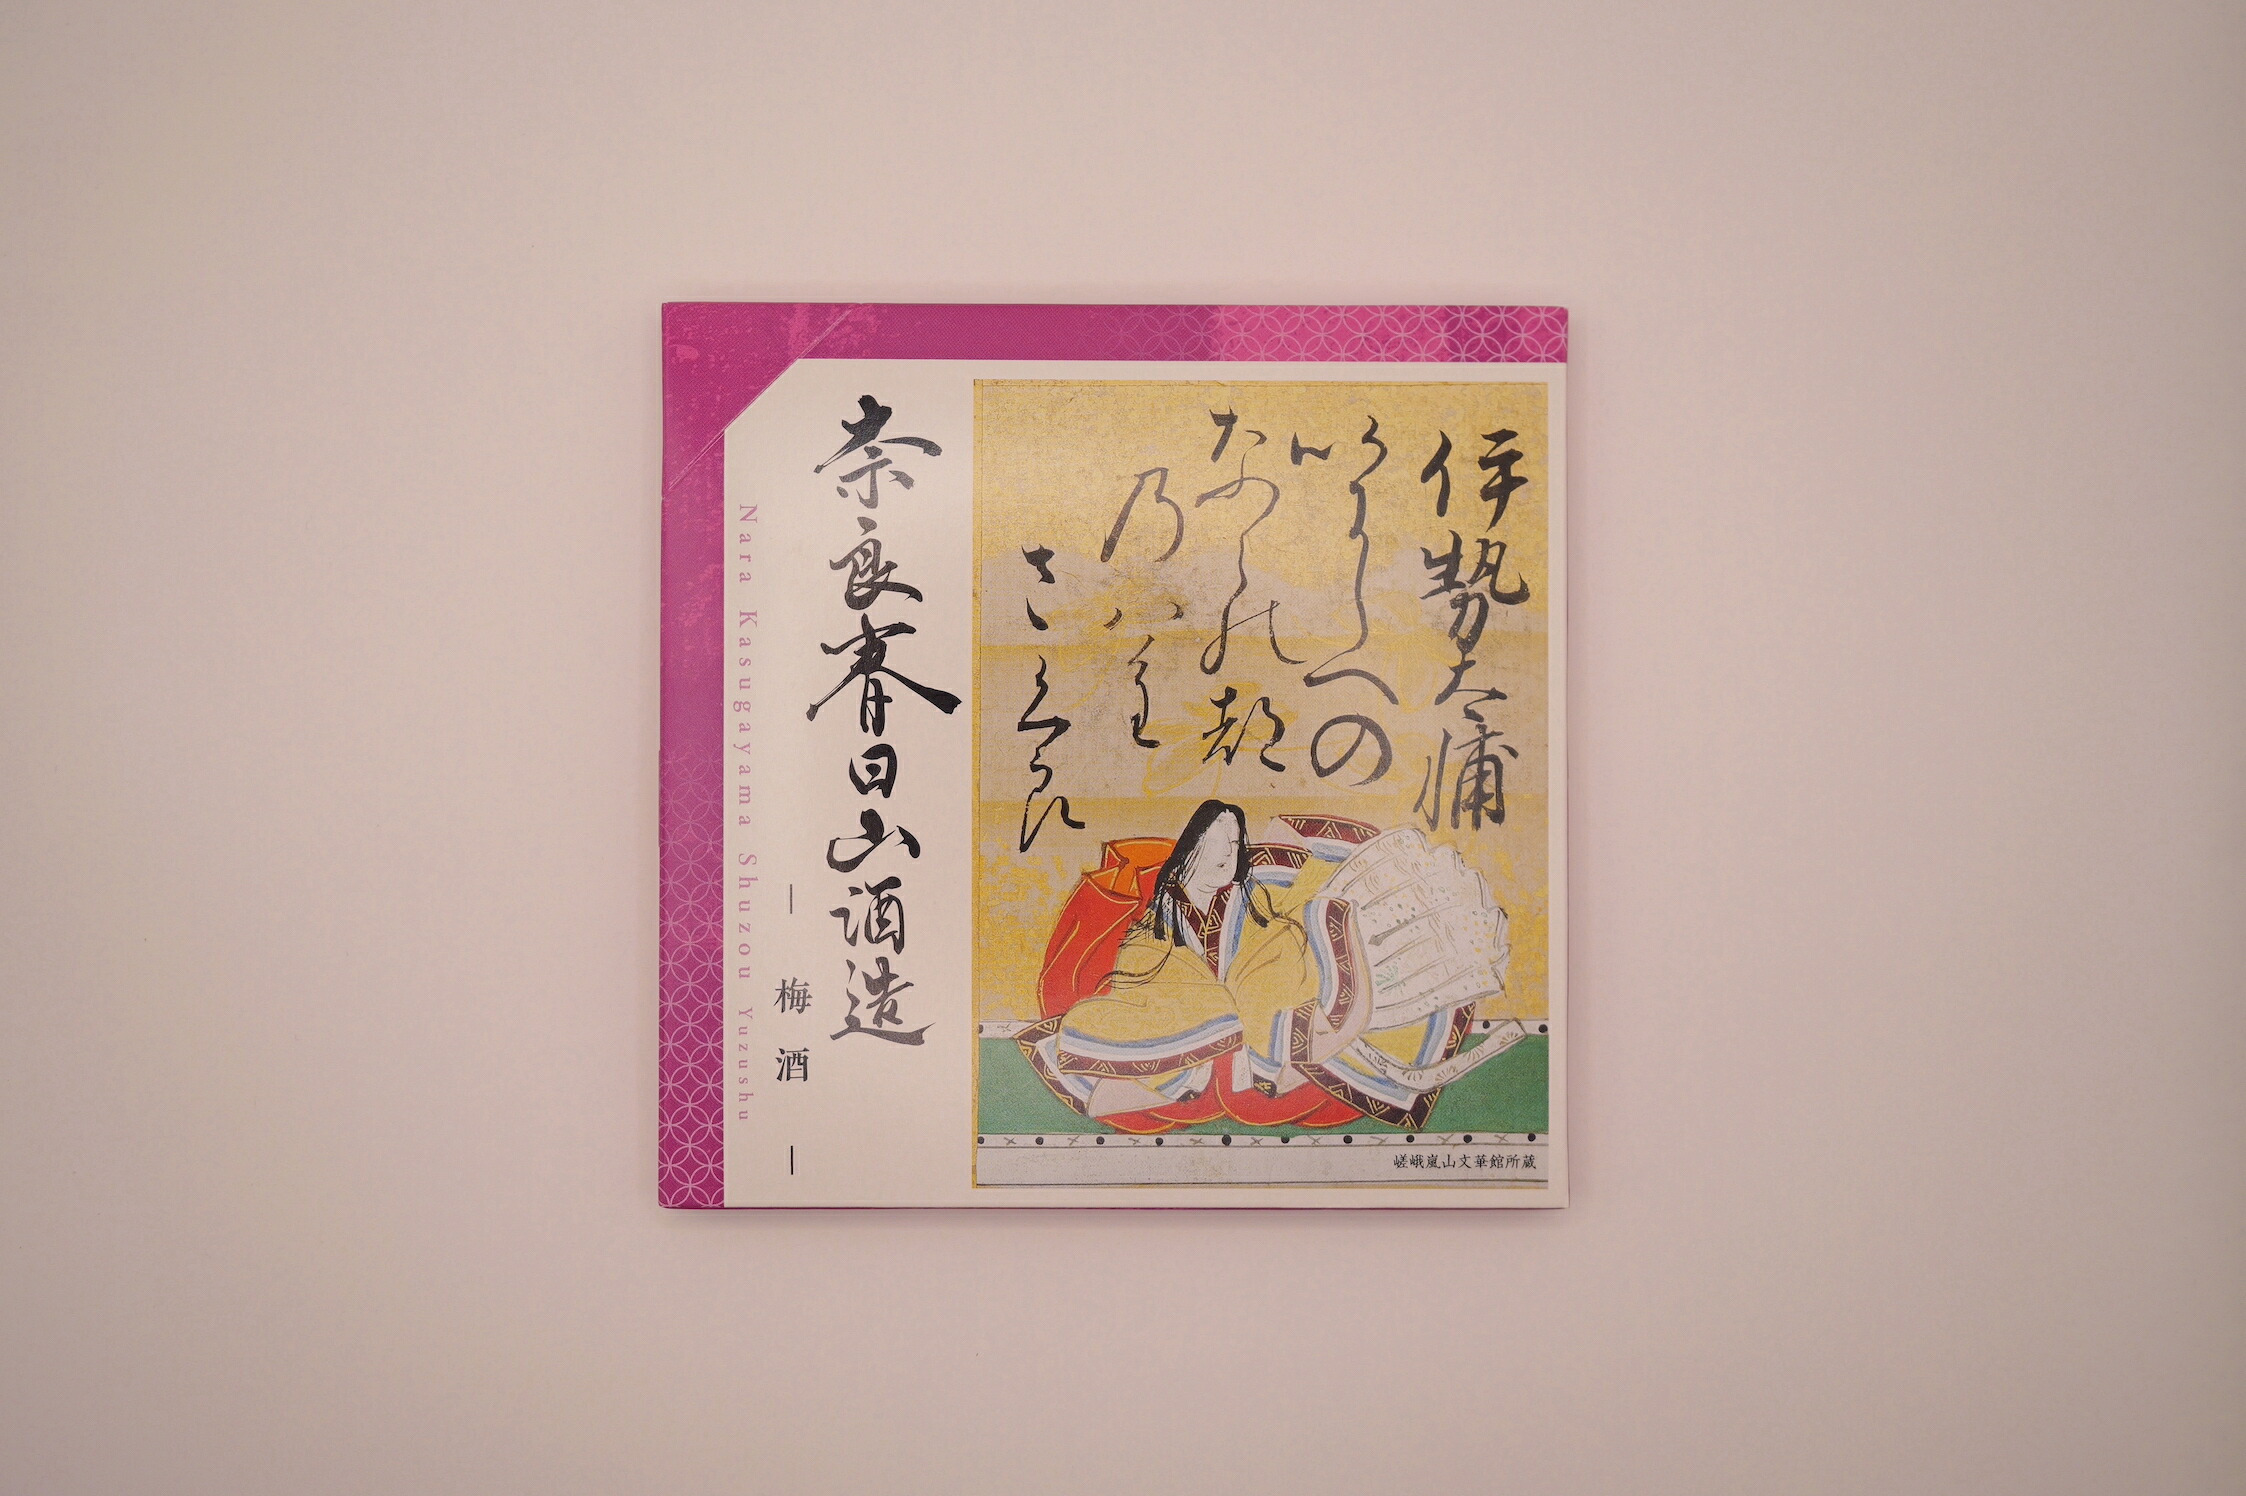 伊勢大輔
いにしへの
なら能都
乃八重
さくら
奈良春日山酒造
梅酒
Nara Kasugayama Shuzou Yuzushu
嵯峨嵐山文華館所蔵